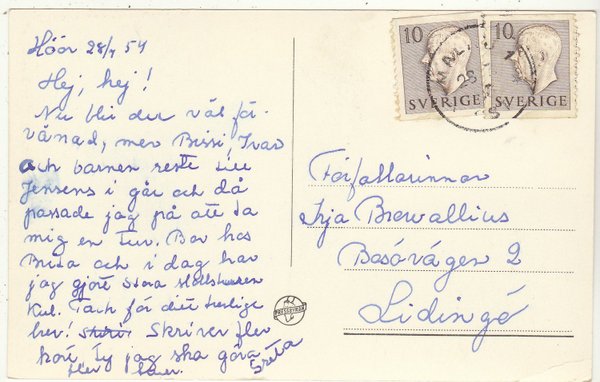 Höör 28/7 54
Hej, hej!
Nu blir du väl för-
vånad, men Bissi, Ivar
och barnen reste till
Jensens i går och då
passade jag på att ta
mig en tur. Bor hos
Brita och i dag har
jag gjort stora
Kul. Tack för ditt trevliga
brev! Skriver fler
kort, ty jag ska göra
fler
Greta
10 10
SVERIGE SVERIGE
Författarinnan
Irja Browallius
Bosövägen 2
Lidingö